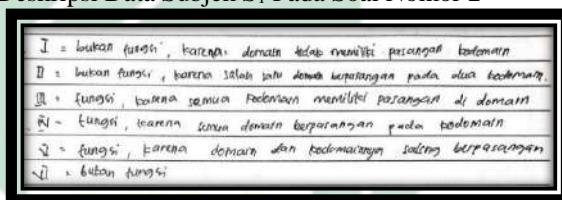 Deskripsi Data Subjek S₇ Pada Soal Nomor 2
I = bukan fungsi, karena domain tidak memiliki pasangan kodomain
II = bukan fungsi, karena salah satu domain berpasangan pada dua kodomain.
III = fungsi, karena semua kodomain memiliki pasangan di domain
IV = fungsi, karena semua domain berpasangan pada kodomain
V = fungsi, karena domain dan kodomainnya saling berpasangan
VI = bukan fungsi